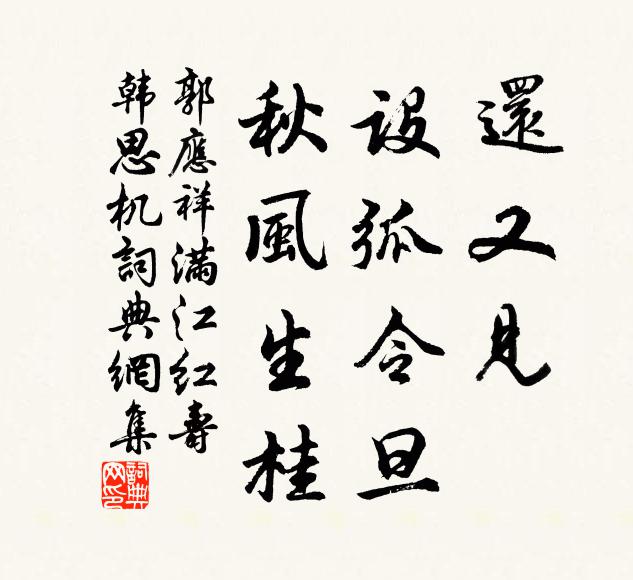 還又見
設弧令旦
秋風生桂
郭應祥滿江紅壽
韩思机詞典網集
詞典
网印